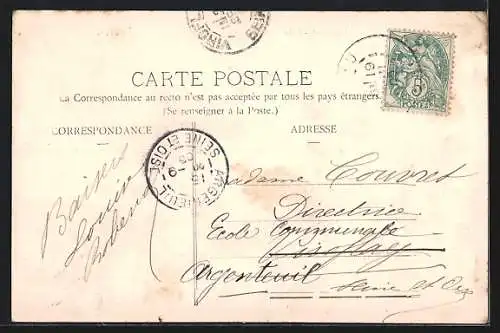 CARTE POSTALE
La Correspondance au recto n'est pas acceptée par tous les pays étrangers
(Se renseigner à la Poste.)
CORRESPONDANCE
ADRESSE
Baisers
Madame Couvret
Directrice
Ecole Communale
Viroflay
Argenteuil
Seine et Oise
ARGENTEUIL
SEINE ET OISE
5